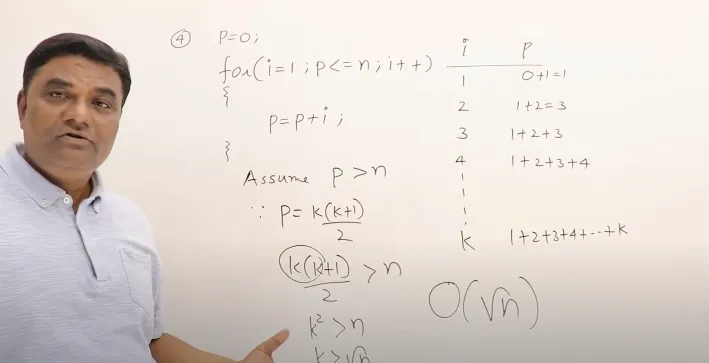 ④ P=0;
for(i=1;p<=n;i++)
{
p=p+i;
}
Assume p>n
∵ P=k(k+1)/2
k(k+1)/2 > n
k² > n
k > √n
i P
1 0+1=1
2 1+2=3
3 1+2+3
4 1+2+3+4
k 1+2+3+4+--+k
O(√n)